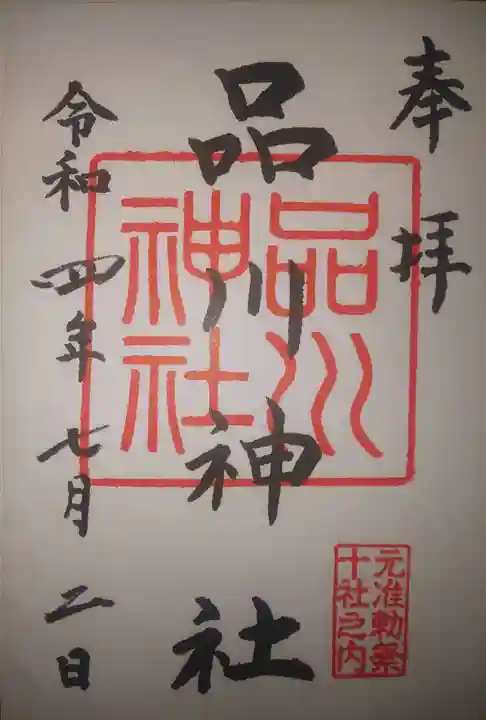 奉拝
品川神社
品川神社
元准勅祭
十社之内
令和四年七月二日